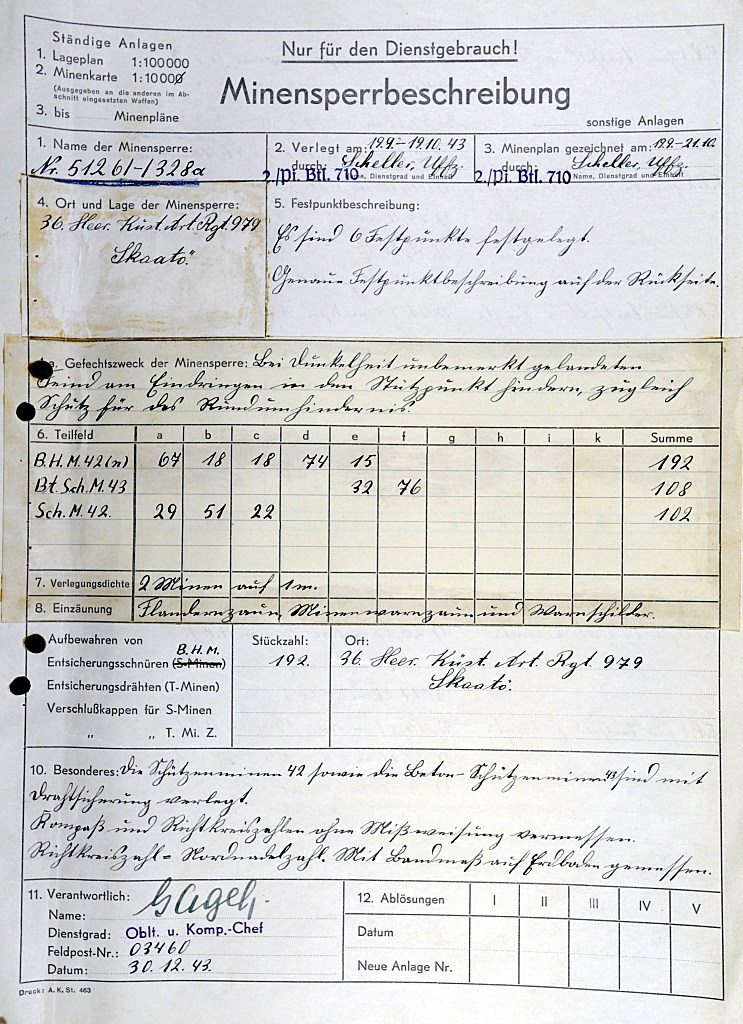 Ständige Anlagen
1. Lageplan 1:100000
2. Minenkarte 1:10000
(Ausgegeben an die anderen im Ab-
schnitt eingesetzten Waffen)
3. bis Minenpläne
Nur für den Dienstgebrauch!
Minensperrbeschreibung
sonstige Anlagen
1. Name der Minensperre:
Nr. 51261-1328a
2. Verlegt am: 19.9.-19.10.43
durch: Scheller, Uffz.
2./Pi. Btl. 710
e, Dienstgrad und Einheit
3. Minenplan gezeichnet am: 19.9.-21.10.
durch: Scheller, Uffz.
2./Pi. Btl. 710
Name, Dienstgrad und Einheit
4. Ort und Lage der Minensperre:
36. Heer. Küst. Art. Rgt. 979
Skaatö."
5. Festpunktbeschreibung:
Es sind 6 Festpunkte festgelegt.
Genaue Festpunktbeschreibung auf der Rückseite.
a. Gefechtszweck der Minensperre: Bei Dunkelheit unbemerkt gelandeten
Feind am Eindringen in den Stützpunkt hindern, zugleich
Schutz für das Rundumhindernis.
6. Teilfeld a b c d e f g h i k Summe
B.H.M. 42 (n) 67 18 18 74 15 192
Bt. Sch. M. 43 32 76 108
Sch. M. 42. 29 51 22 102
7. Verlegungsdichte 2 Minen auf 1 m.
8. Einzäunung Flandernzaun, Minenwarnzaun und Warnschilder.
Aufbewahren von
B.H.M.
Entsicherungsschnüren (S-Minen)
Entsicherungsdrähten (T-Minen)
Verschlußkappen für S-Minen
„ „ T. Mi. Z.
Stückzahl:
192.
Ort:
36. Heer. Küst. Art. Rgt. 979
Skaatö.
10. Besonderes: Die Schützenminen 42 sowie die Beton-Schützenminen 43 sind mit
Drahtsicherung verlegt.
Kompaß und Richtkreiszahlen ohne Mißweisung vermessen.
Richtkreiszahl = Nordnadelzahl. Mit Bandmaß auf Erdboden gemessen.
11. Verantwortlich:
Name:
Dienstgrad: Oblt. u. Komp.-Chef
Feldpost-Nr.: 03460
Datum: 30.12.43.
12. Ablösungen I II III IV V
Datum
Neue Anlage Nr.
Druck: A. K. St. 463